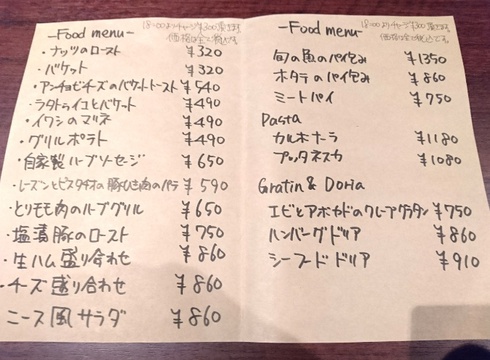 -Food menu-
18:00よりチャージ¥300頂きます。
価格は全て税込です。
・ナッツのロースト ¥320
・バケット ¥320
・アンチョビチーズのバケットトースト ¥540
・ラタトゥイユとバケット ¥490
・イワシのマリネ ¥490
・グリルポテト ¥490
・自家製ハーブソーセージ ¥650
・レーズンとピスタチオの豚ひき肉のパテ ¥590
・とりモモ肉のハーブグリル ¥650
・塩漬豚のロースト ¥750
・生ハム盛り合わせ ¥860
・チーズ盛り合わせ ¥860
ニース風サラダ ¥860
-Food menu-
18:00よりチャージ¥300頂きます。
価格は全て税込です。
旬の魚のパイ包み ¥1350
ホタテのパイ包み ¥860
ミートパイ ¥750
Pasta
カルボナーラ ¥1180
プッタネスカ ¥1080
Gratin & Doria
エビとアボカドのクレープグラタン ¥750
ハンバーグドリア ¥860
シーフードドリア ¥910